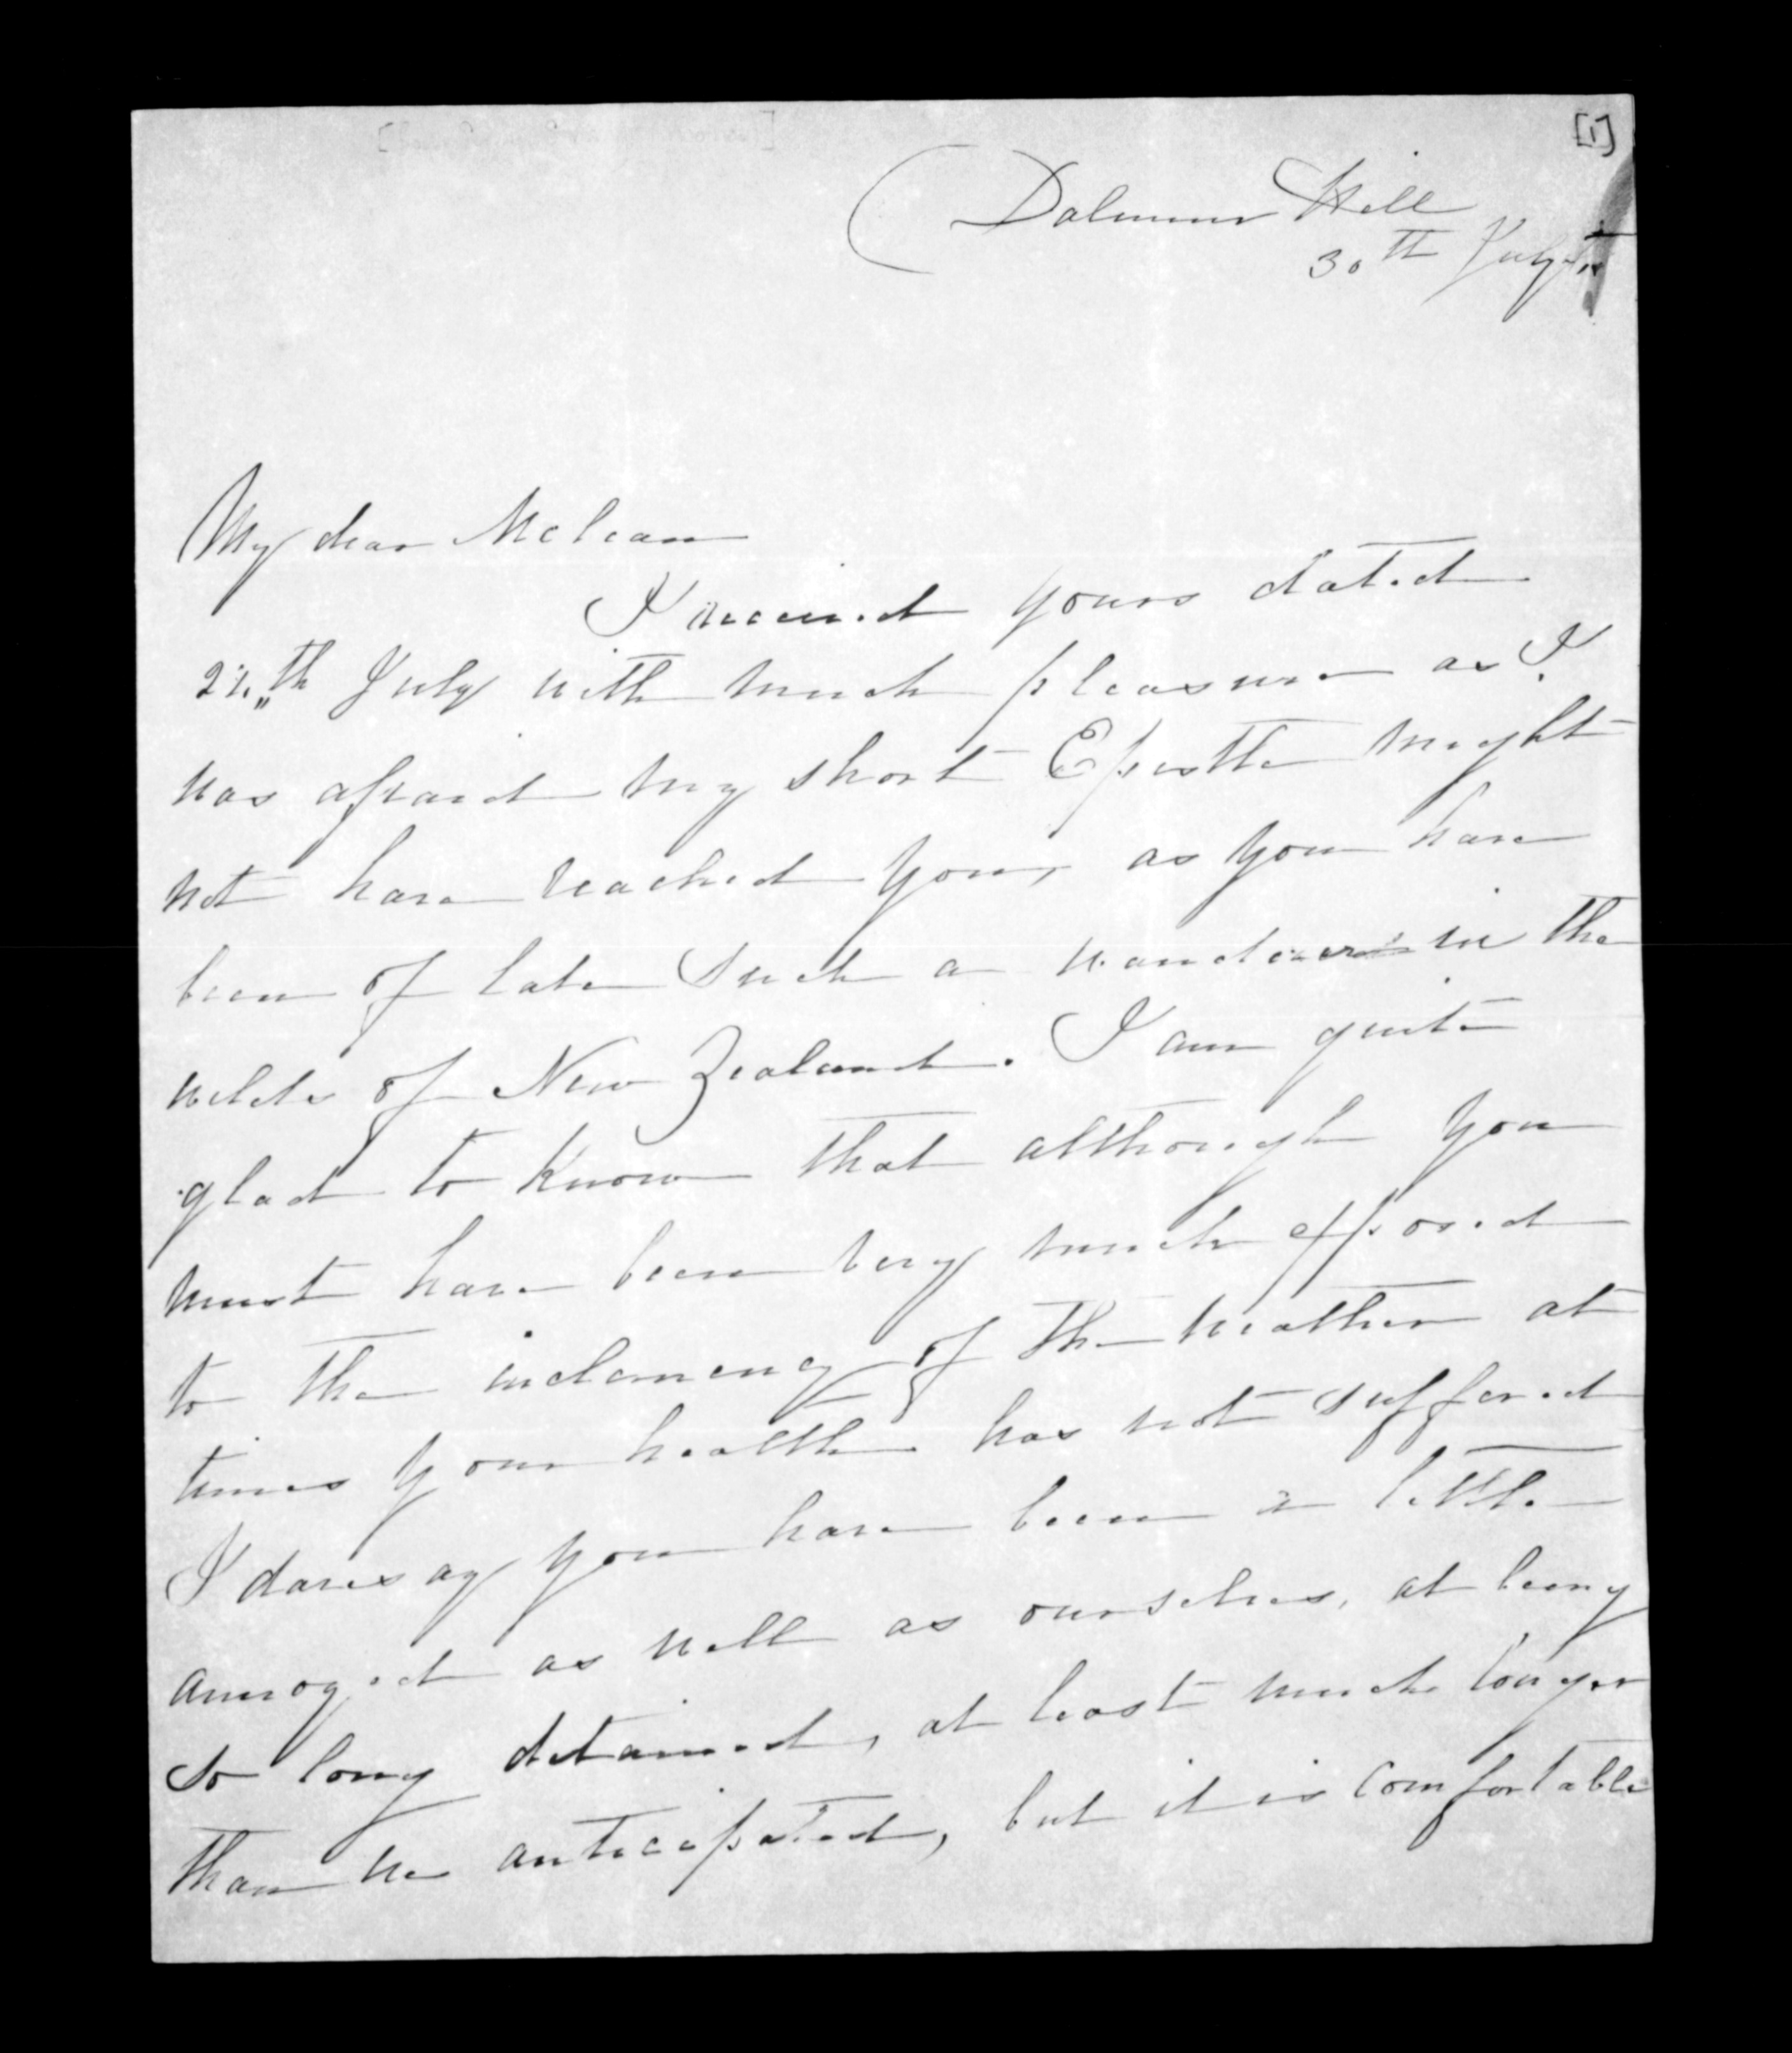 [1]
Hill
30th July
My dear McLean
I received yours dated
July with much pleasure as I
was afraid my short Epistle might
not have reached you, as you have
been of late such a wanderer in the
wilds of New Zealand. I am quite
glad to know that although you
must have been very much exposed
to the inclemency of the weather at
times your health has not suffered
I daresay you have been a little
annoyed as well as ourselves, at being
so long detained, at least much longer
than we anticipated, but it is comfortable